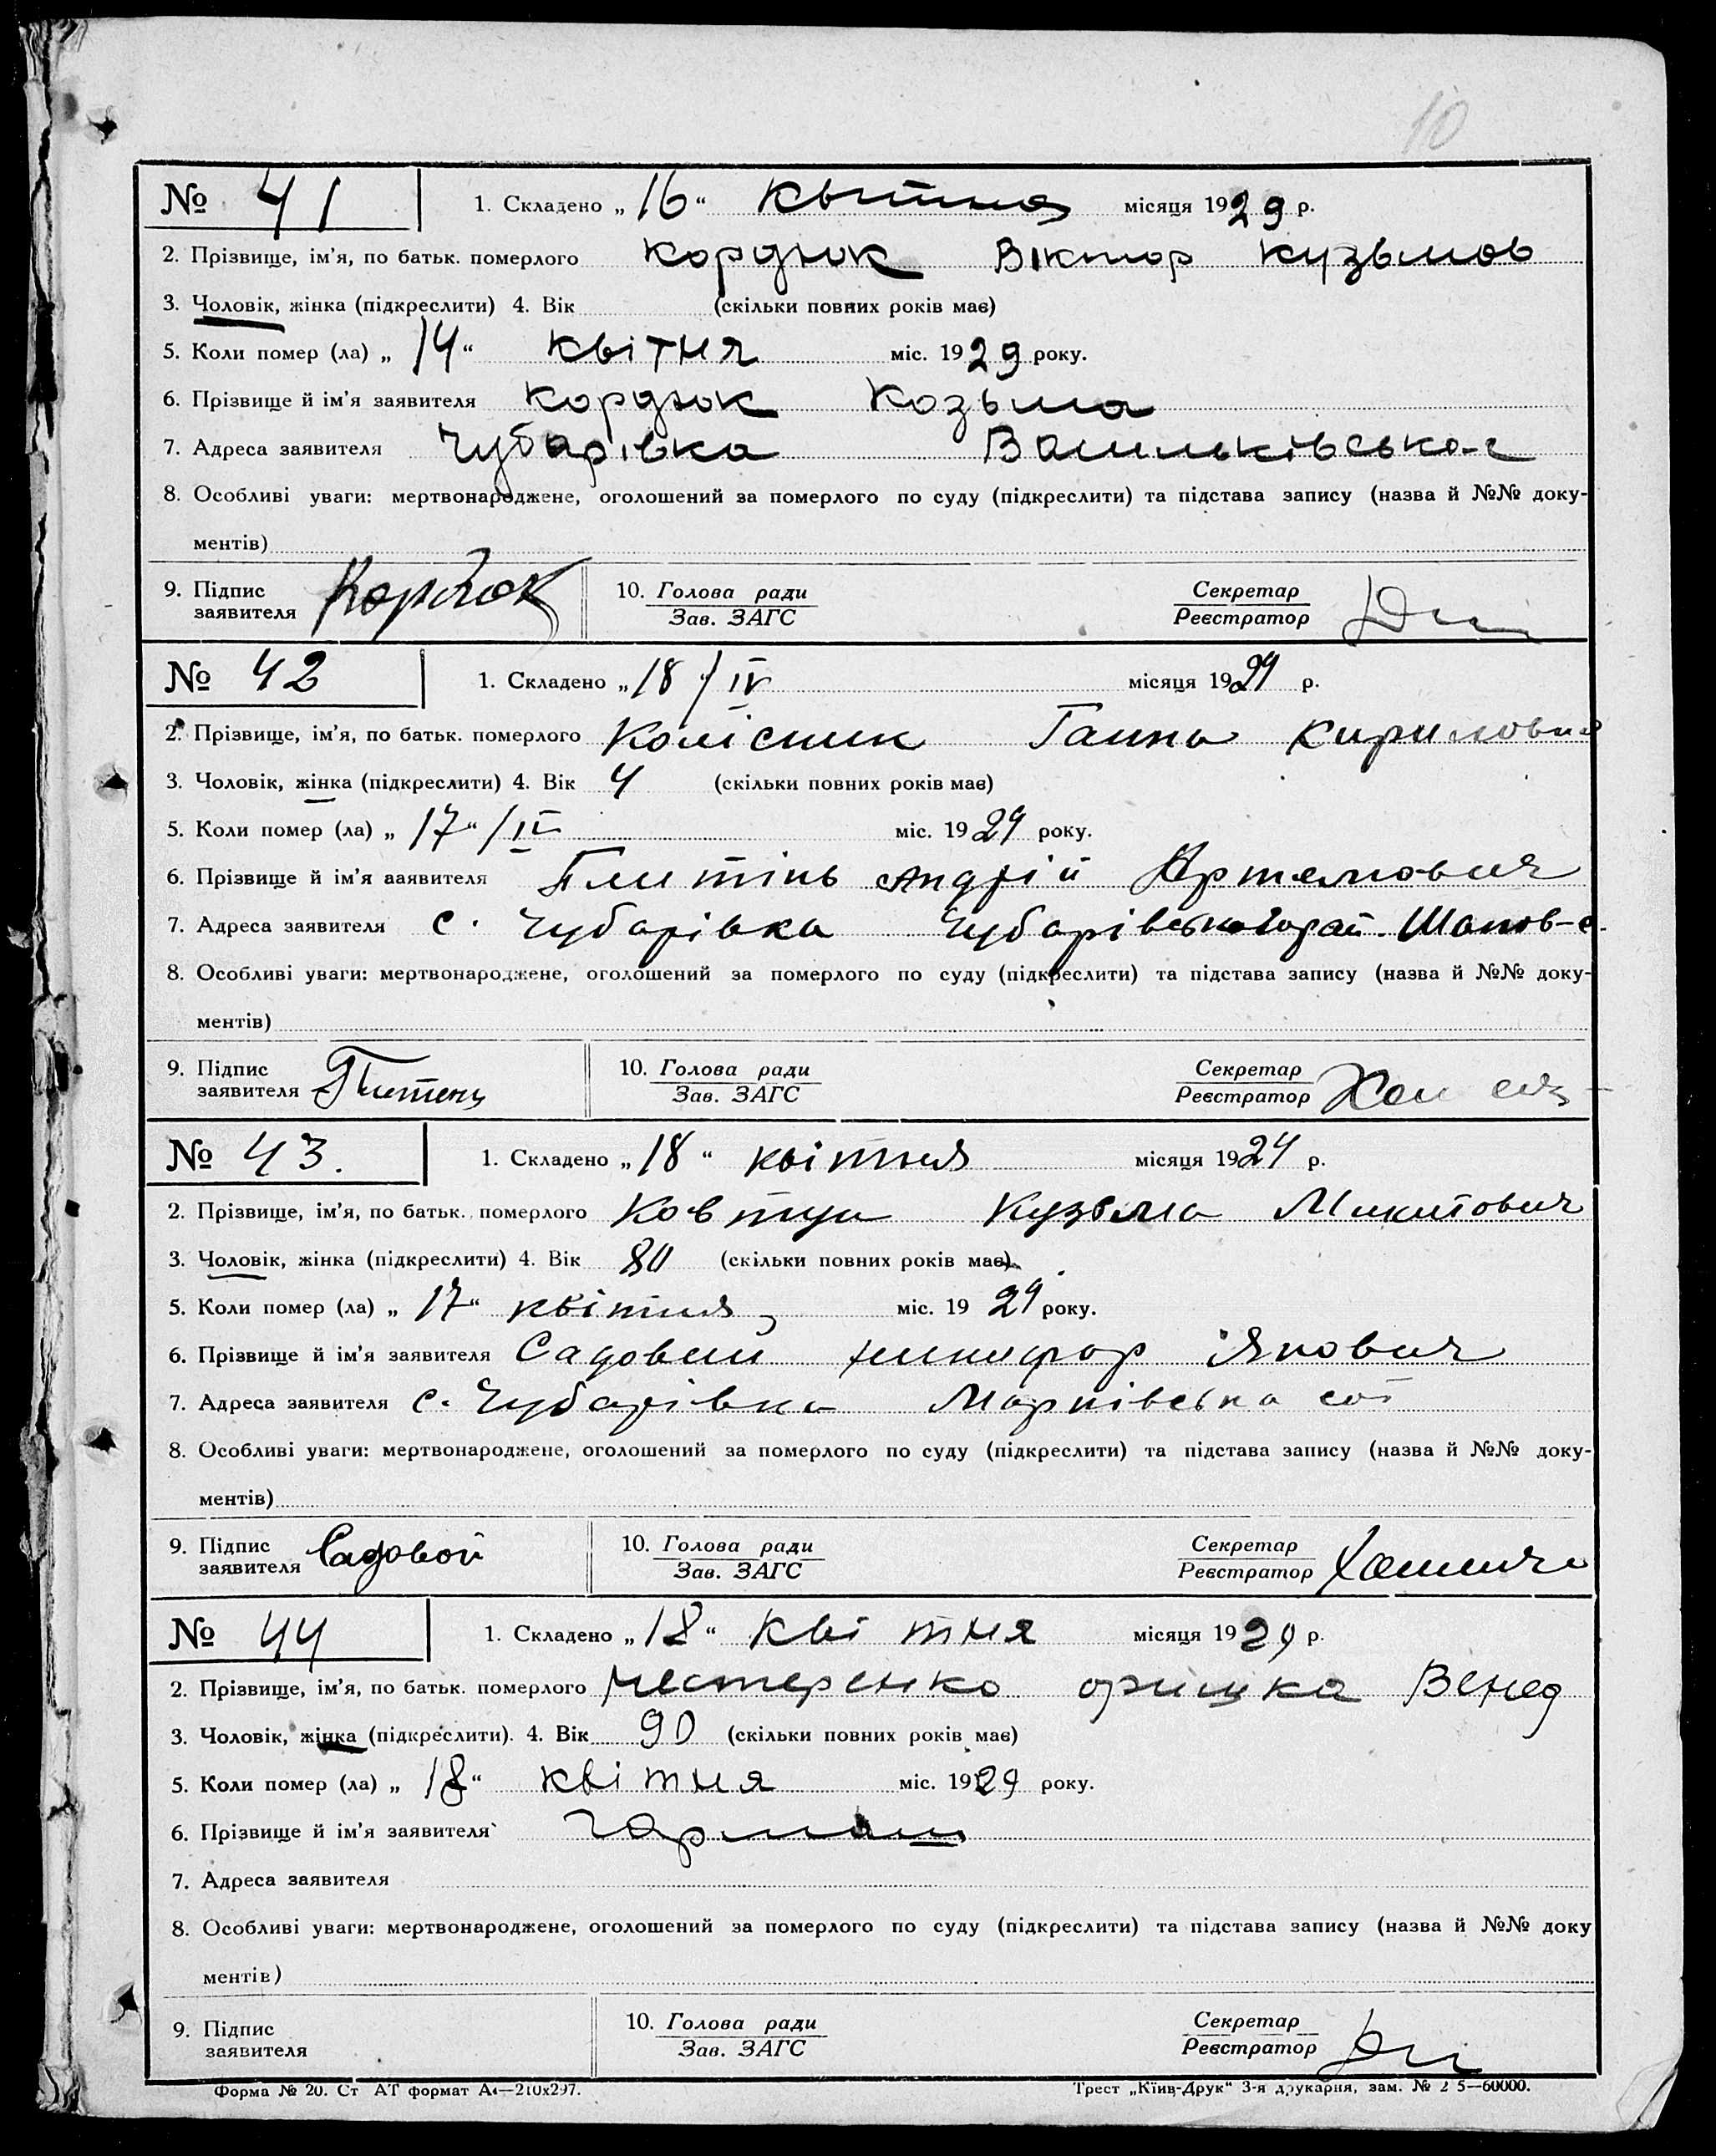 10
№ 41 1. Складено „16“ квітня місяця 1929 р.
2. Прізвище, ім’я, по батьк. померлого Кордюк Віктор Кузьмов
3. Чоловік, жінка (підкреслити) 4. Вік (скільки повних років має)
5. Коли помер (ла) „14“ квітня міс. 1929 року.
6. Прізвище й ім’я заявителя Кордюк Козьма
7. Адреса заявителя Чубарівка Васильківська-с
8. Особливі уваги: мертвонароджене, оголошений за померлого по суду (підкреслити) та підстава запису (назва й №№ доку-
ментів)
9. Підпис заявителя Кордюк 10. Голова ради Зав. ЗАГС Секретар Реєстратор
№ 42 1. Складено „18“/IV місяця 1929 р.
2. Прізвище, ім’я, по батьк. померлого Колісник Ганна Кириловна
3. Чоловік, жінка (підкреслити) 4. Вік 4 (скільки повних років має)
5. Коли помер (ла) „17“/IV міс. 1929 року.
6. Прізвище й ім’я ааявителя Андрій Артемович
7. Адреса заявителя с. Чубарівка Чубарівського рай.
8. Особливі уваги: мертвонароджене, оголошений за померлого по суду (підкреслити) та підстава запису (назва й №№ доку-
ментів)
9. Підпис заявителя 10. Голова ради Зав. ЗАГС Секретар Реєстратор
№ 43. 1. Складено „18“ квітня місяця 1929 р.
2. Прізвище, ім’я, по батьк. померлого Ковтун Кузьма Микитович
3. Чоловік, жінка (підкреслити) 4. Вік 80 (скільки повних років має)
5. Коли помер (ла) „17“ квітня міс. 1929 року.
6. Прізвище й ім’я заявителя Садовий Никифор Якович
7. Адреса заявителя с. Чубарівка Марківська сот
8. Особливі уваги: мертвонароджене, оголошений за померлого по суду (підкреслити) та підстава запису (назва й №№ доку-
ментів)
9. Підпис заявителя Садовой 10. Голова ради Зав. ЗАГС Секретар Реєстратор
№ 44 1. Складено „18“ квітня місяця 1929 р.
2. Прізвище, ім’я, по батьк. померлого Нестеренко Оришка Венед
3. Чоловік, жінка (підкреслити). 4. Вік 90 (скільки повних років має)
5. Коли помер (ла) „18“ квітня міс. 1929 року.
6. Прізвище й ім’я заявителя Гармаш
7. Адреса заявителя
8. Особливі уваги: мертвонароджене, оголошений за померлого по суду (підкреслити) та підстава запису (назва й №№ доку
ментів)
9. Підпис заявителя 10. Голова ради Зав. ЗАГС Секретар Реєстратор
Форма № 20. Ст АТ формат А4—210х297. Трест „Київ-Друк“ 3-я друкарня, зам. № 2 5—60000.